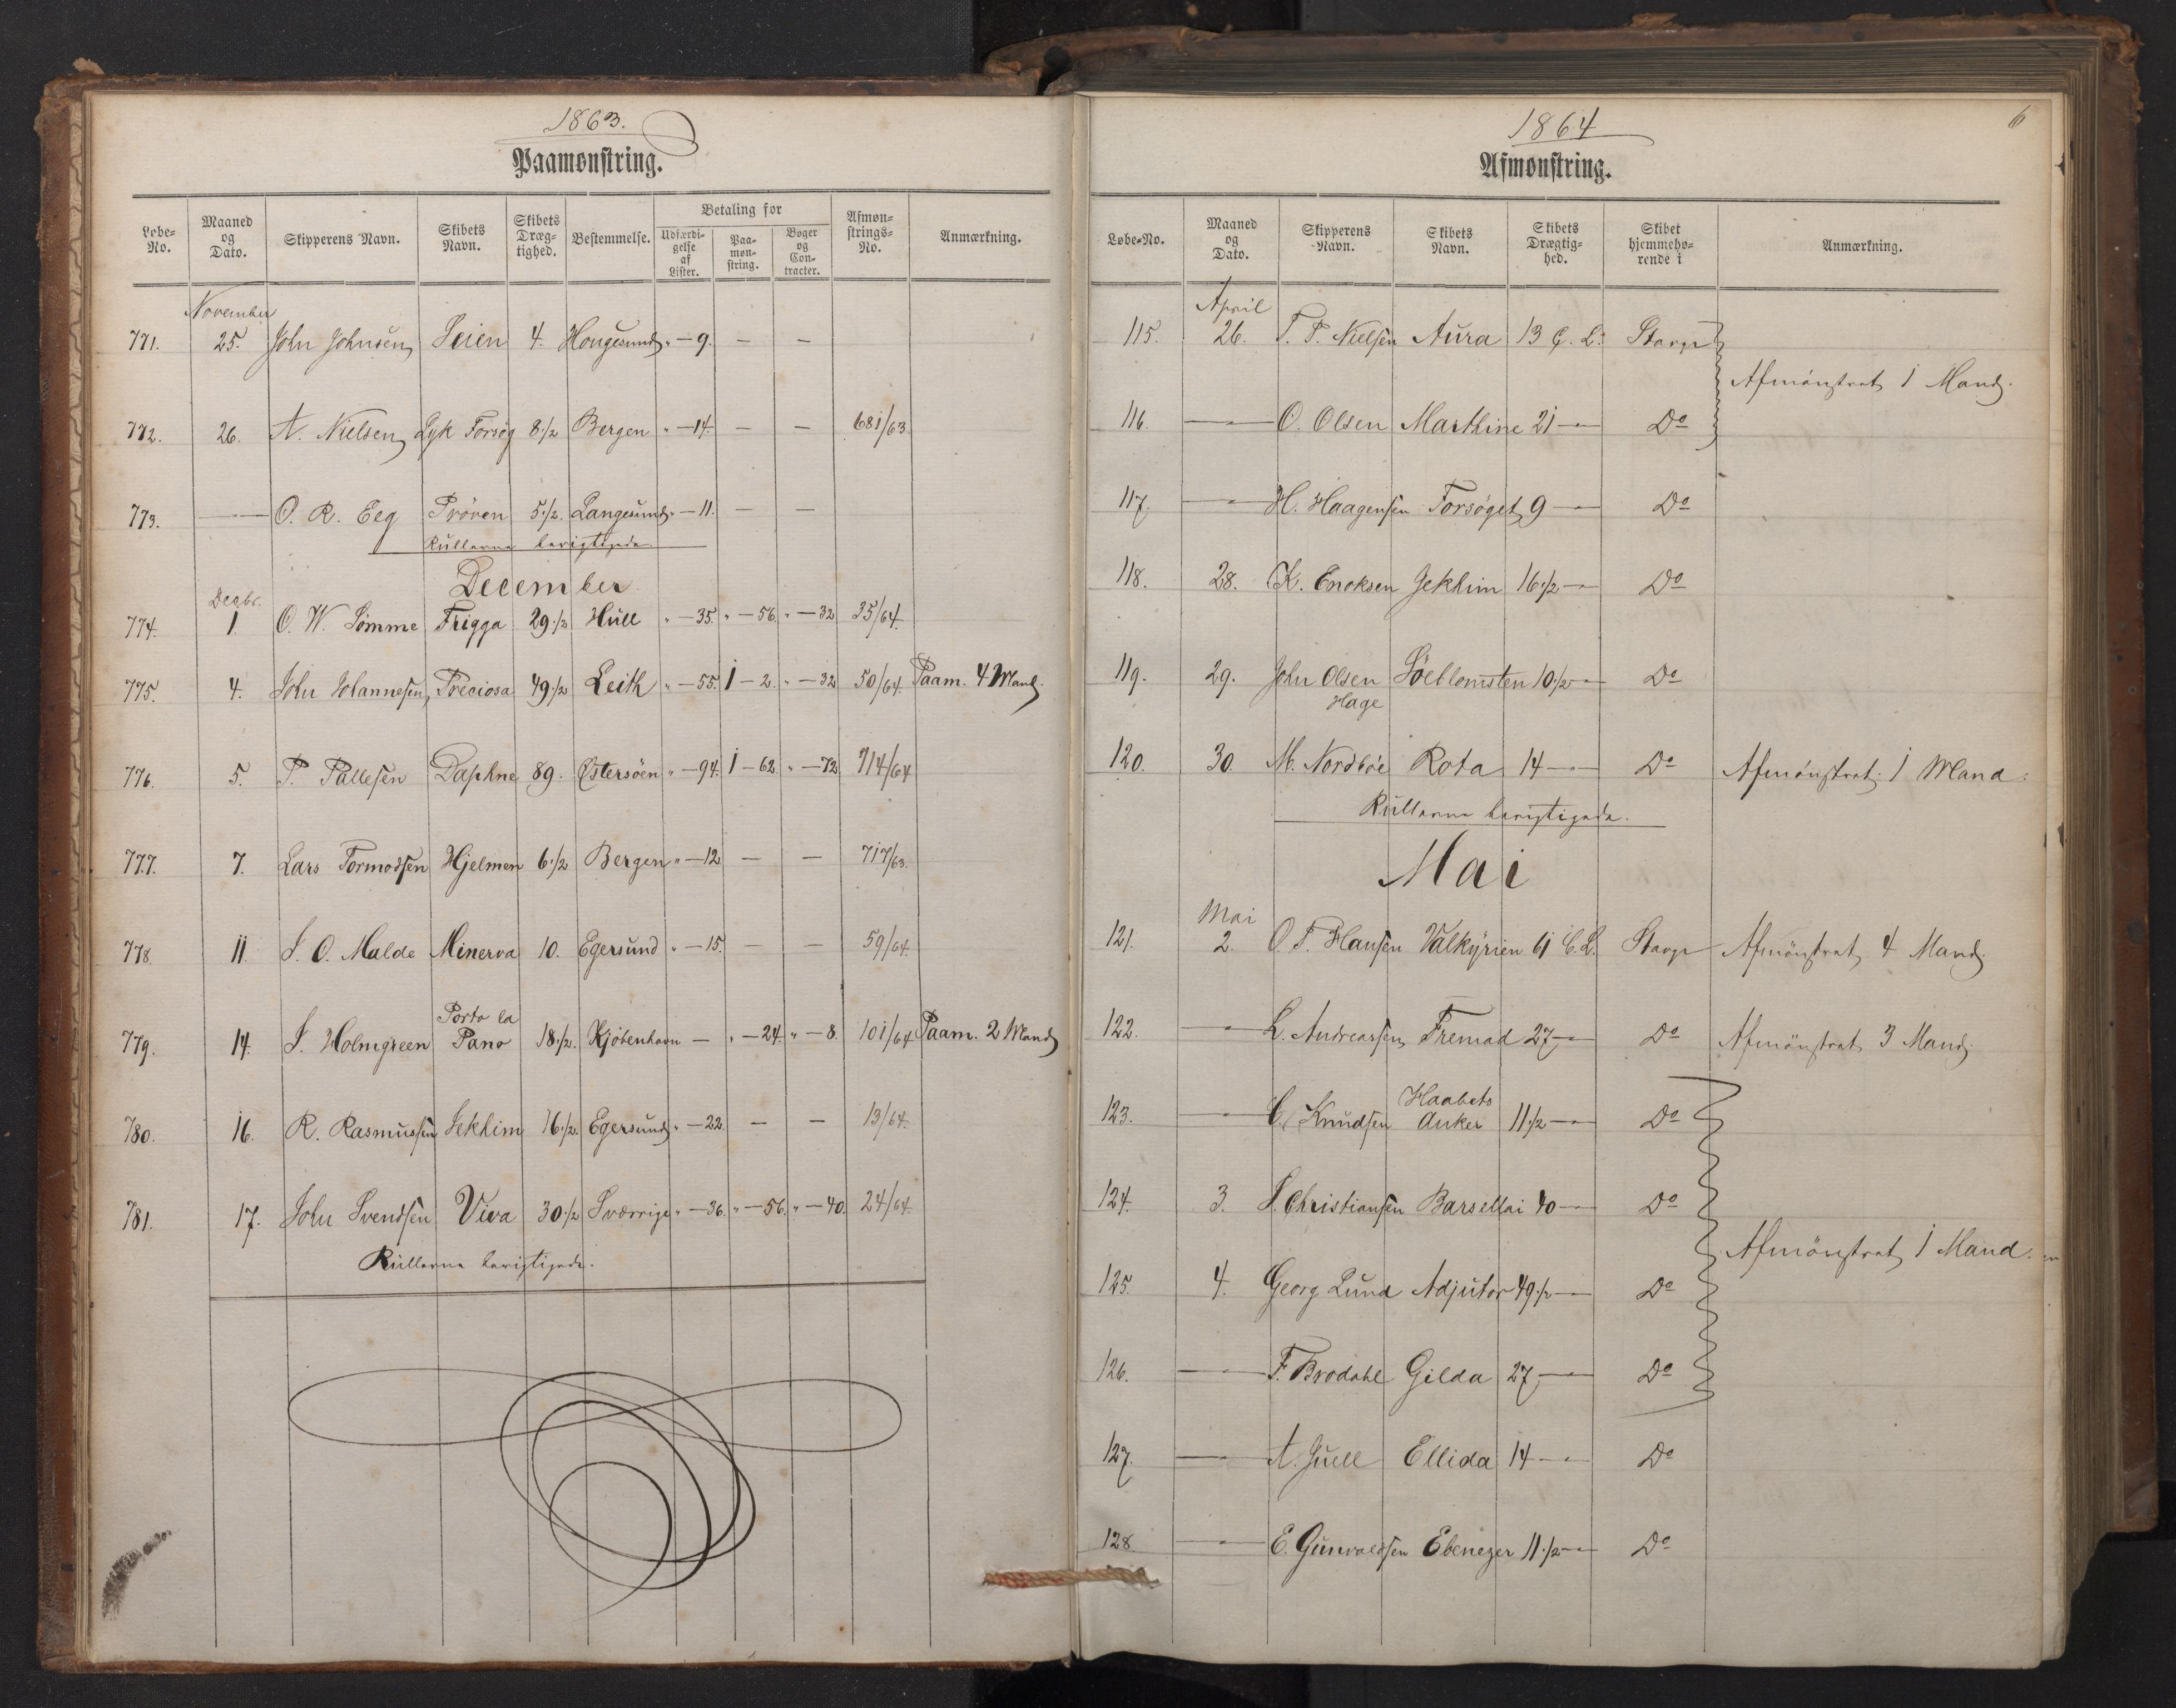 1863.
Paamønstring.
Løbe-No. Maaned og Dato. Skipperens Navn. Skibets Navn. Skibets Dræg-tighed. Bestemmelse. Betaling for Udfærdi-gelse af Lister. Paa-møn-string. Bøger og Con-tracter. Afmøn-strings-No. Anmærkning.
November
771. 25. John Johnsen Seien 4. Hougesund " — 9. — —
772. 26. A. Nielsen Lyk Forsøg 8 1/2 Bergen " — 14. — — 681/63.
773. — " — O. R. Eeg Prøven 5 1/2. Langesund " — 11. — —
Rullerne berigtigede.
December
Decbr.
774. 1 O. W. Sømme Frigga 29 1/2 Hull " — 35. " — 56. " — 32 35/64.
775. 4. John Johannesen Preciosa 49 1/2 Leith " — 55. 1 — 2. " — 32 50/64. Paam. 4 Mand.
776. 5. P. Pallesen Daphne 89. Østersøen " — 94. 1 — 62. " — 72 714/64
777. 7. Lars Tormodsen Hjelmen 6 1/2 Bergen " — 12 — — 717/63.
778. 11. S. O. Malde Minerva 10. Egersund " — 15. — — 59/64.
Porto la
779. 14. J. Holmgreen Pano 18 1/2. Kjøbenhavn — " — 24. " — 8. 101/64 Paam. 2 Mand
780. 16. R. Rasmussen Jekhim 16 1/2. Egersund " — 22. — — 13/64.
781. 17. John Svendsen Viva 30 1/2 Sverrige " — 36. " — 56. " — 40. 24/64.
Rullerne berigtigede.
6
1864
Afmønstring.
Løbe-No. Maaned og Dato. Skipperens Navn. Skibets Navn. Skibets Drægtig-hed. Skibet hjemmehø-rende i Anmærkning.
April
115. 26. T. T. Nielsen Aura 13 C. L. Stavgr
Afmønstret 1 Mand.
116. — " — O. Olsen Marthine 21 — " — Do
117. — " — H. Haagensen Forsøget 9 — " — Do
118. 28. K. Enoksen Jekhim 16 1/2 — " — Do
119. 29. John Olsen Søeblomsten 10 1/2 — " — Do
Hage
120. 30 M. Nordbøe Rota 14 — " — Do Afmønstret 1 Mand.
Rullerne berigtigede.
Mai
Mai
121. 2. O. T. Hansen Valkyrien 61 C. L. Stavgr Afmønstret 4 Mand.
122. — " — L. Andreassen Fremad 27 — " — Do Afmønstret 3 Mand.
Haabets
123. — " — C. Knudsen Anker 11 1/2 — " — Do
124. 3. S. Christiansen Barsellai 40 — " — Do
Afmønstret 1 Mand.
125. 4. Georg Lund Adjutor 49 1/2 — " — Do
126. — " — F. Brodahl Gilda 27 — " — Do
127. — " — A. Juell Ellida 14 — " — Do
128. — " — E. Gunvaldsen Ebenezer 11 1/2 — " — Do